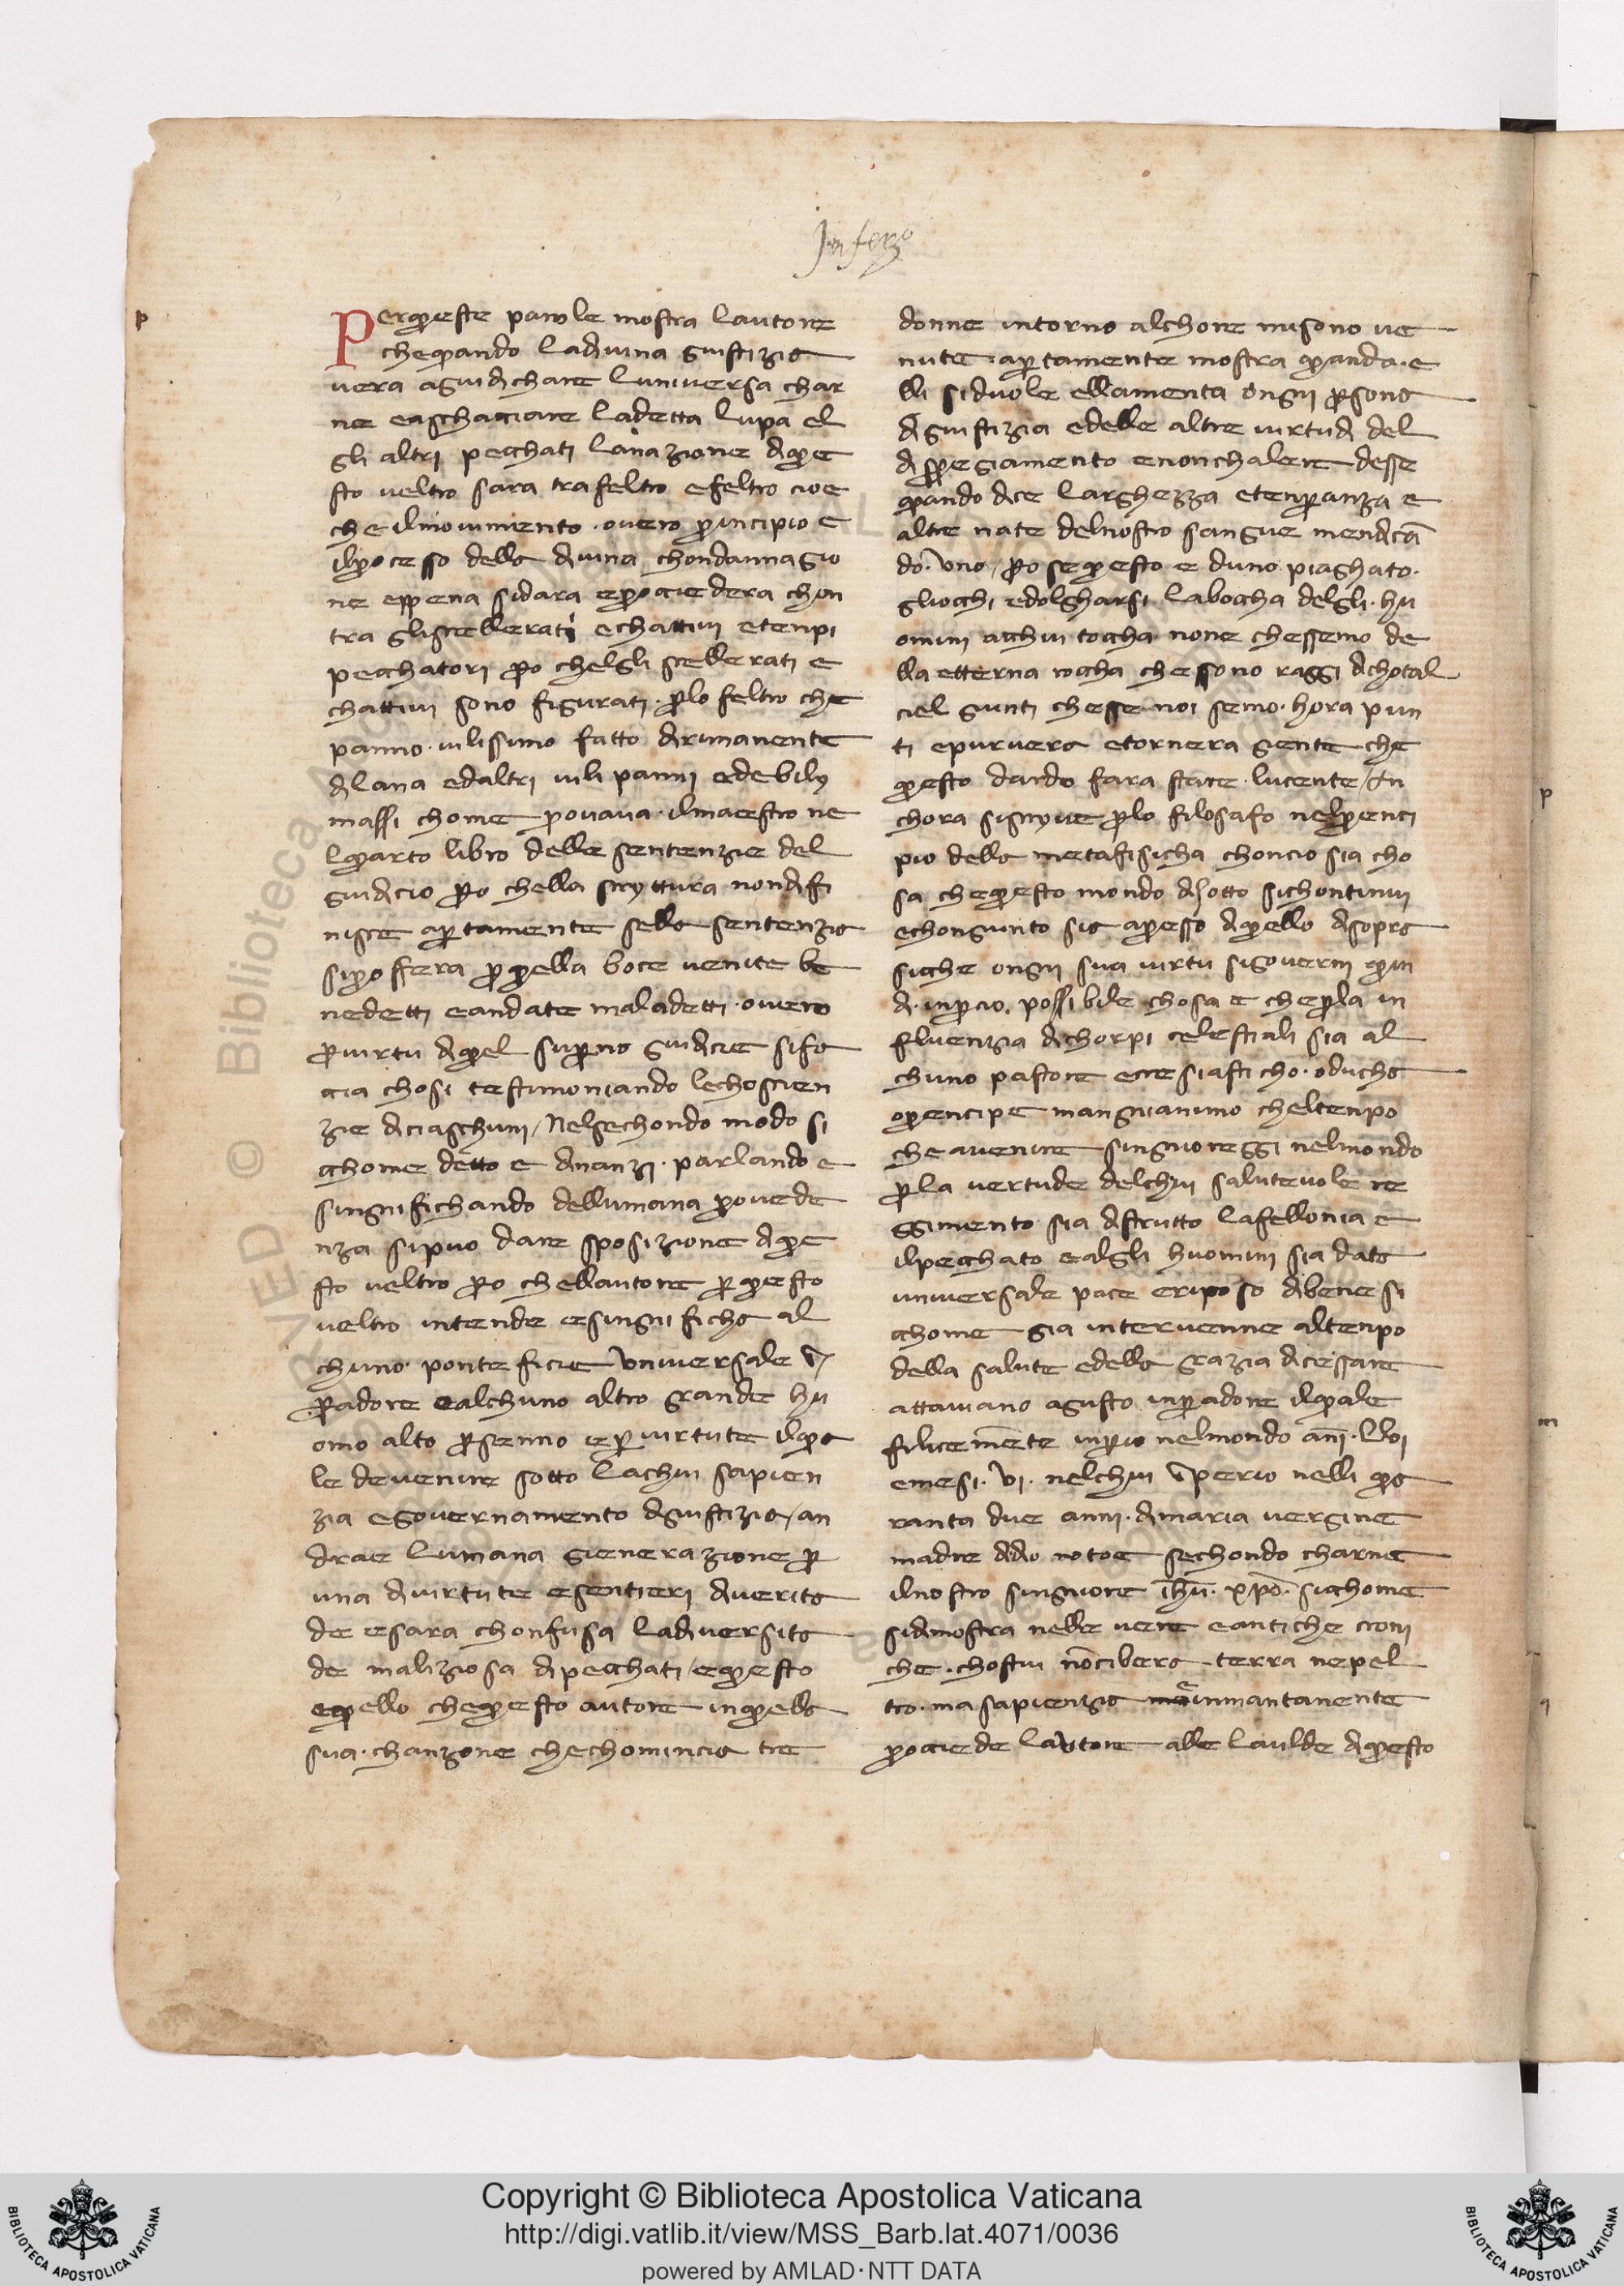 Inferno
p
Per queste parole mostra lautore
che quando ladivina giustizia
verra agiudichare luniversa char
ne easchacciare ladetta lupa el
gli altri pecchati lanazione diq̄e
sto veltro sara trafeltro efeltro cioe
che ilmovimento · overo p̄incipio e
ilp̄ocesso della divina chondannagio
ne eppena sidara ep̄occiedera chon
tra gliscellerati echattivi etenpi
pecchatori p̄o chelgli scellerati e
chattivi sono figurati · p̄lo feltro che
panno · vilissimo fatto dirimanente
dilana edaltri vili panni edebily
massi chome p̄ovava · ilmaestro ne
lq̄arto libro delle sentenzie del
giudicio p̄o chella scryttura nondifi
nisce ap̄tamente sella sentenzia
sip̄offera p̄q̄ella boce venite be
nedetti eandate maladetti · overo
p̄virtu diq̄el sup̄no giudicie sifa
ccia chosi testimoniando lechoscien
zie diciaschuni / Nelsechondo modo si
cchome detto e dinanzi · parlando e
singnifichando dellumana p̄ovede
nza sipuo dare sposizione diq̄e
sto veltro p̄o chellautore p̄q̄esto
veltro intende esingnificha al
chuno · pontefficie universale i̅
p̄adore ealchuno altro grande hu
omo alto p̄senno ep̄ virtute ilq̄a
le devenire sotto lachui sapien
zia egovernamento digiustizia / an
drae lumana gienerazione p̄
una divirtute esentieri diverita
de esara chonfusa ladiversita
de maliziosa dipecchati / eq̄esto
eq̄ello cheq̄esto autore inq̄ella
sua · chanzone chechomincia tre
donne intorno alchore misono ve
nute · ap̄tamente mostra q̄anda · e
lli siduole ellamenta ongni p̄sona
digiustizia edelle altre virtudi del
disp̄egiamento enonchalere desse
q̄ando dice larghezza etenp̄anza e
altre nate delnostro sangue mendica̅
do · Vno / p̄o seq̄esto e duno piaghato ·
gliocchi edolgharsi laboccha delgli · hu
omini acchui toccha none chessemo de
lla etterna roccha chessono raggi dichotal
ciel giunti chesse noi semo · hora pun
ti epurvera etornera giente che
q̄esto dardo fara stare · lucente / An
chora siscryve p̄lo filosafo nelp̄enci
pio della metafisicha choncio sia cho
sa cheq̄esto mondo disotto sichontinui
echongiunto sia ap̄esso diq̄ello disopra
sicche ongni sua virtu sigoverni q̄in
di · inp̄cio · possibile chosa e chep̄la in
fluenzia dichorpi celestiali sia al
chuno pastore ecresiasticho · oducha
op̄encipe mangnianimo cheltenpo
che avenire singnioreggi nelmondo
p̄la vertude delchui salutevole re
ggimento sia distrutto lafellonia e
ilpecchato ealgli huomini sia data
universale pace eriposo dibene si
cchome gia intervenne altenpo
della salute edella grazia dicessare
attaviano agusto inp̄adore ilq̄ale
filicemente inp̄io nelmondo anni · lvi
emesi · vi · nelchui i̅perio nelli q̄a
ranta due anni · dimaria vergine
madre didio notoe sechondo charne
ilnostro singniore ihu · xpo · sicchome
sidimostra nelle vere eantiche croni
che · chostui no̅cibera terra nepel
tro · ma sapienzia einmantanente
p̄occiede lautore alle laulde diq̄esto
p
m
Copyright © Biblioteca Apostolica Vaticana
http://digi.vatlib.it/view/MSS_Barb.lat.4071/0036
powered by AMLAD·NTT DATA
BIBLIOTECA APOSTOLICA VATICANA
BIBLIOTECA APOSTOLICA VATICANA